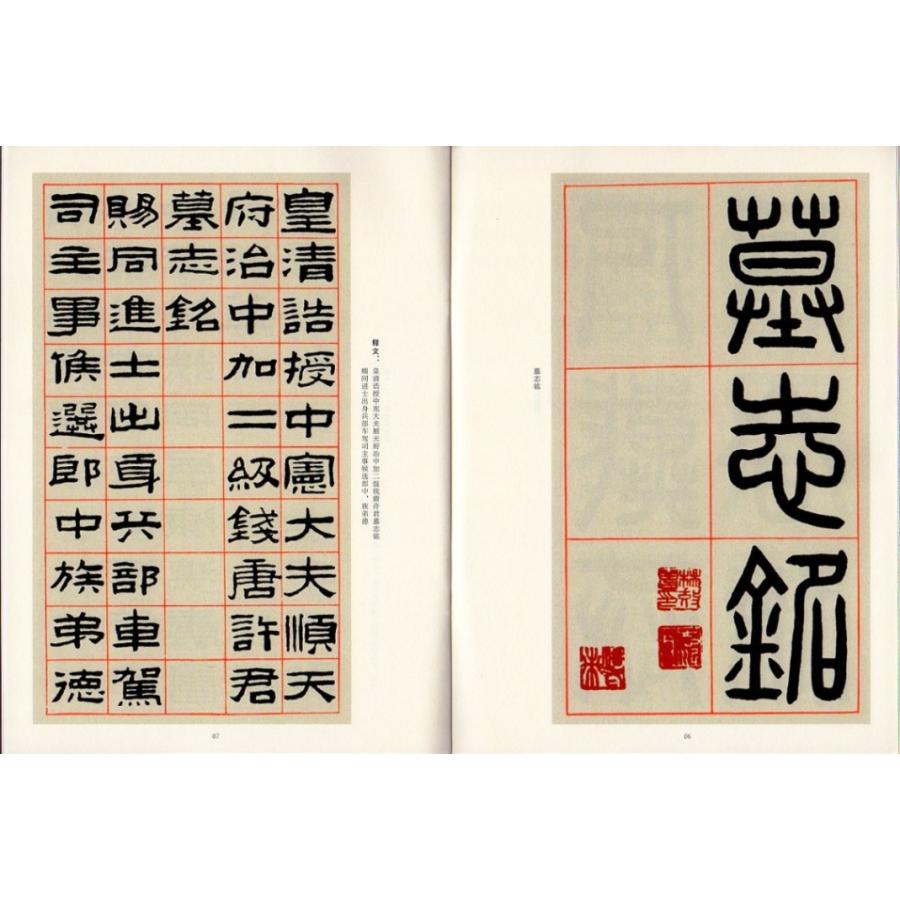 墓志銘
墓志铭
06
释文：皇清诰授中宪大夫顺天府治中加二级钱唐许君墓志铭
赐同进士出身兵部车驾司主事候选郎中，族弟德
皇清誥授中憲大夫順天
府治中加二級錢唐許君
墓志銘
賜同進士出身兵部車駕
司主事候選郎中族弟德
07